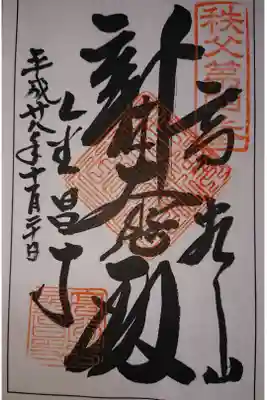 秩父第四番
高谷山
新木大悲殿
金昌寺
平成廿八年十月二十日